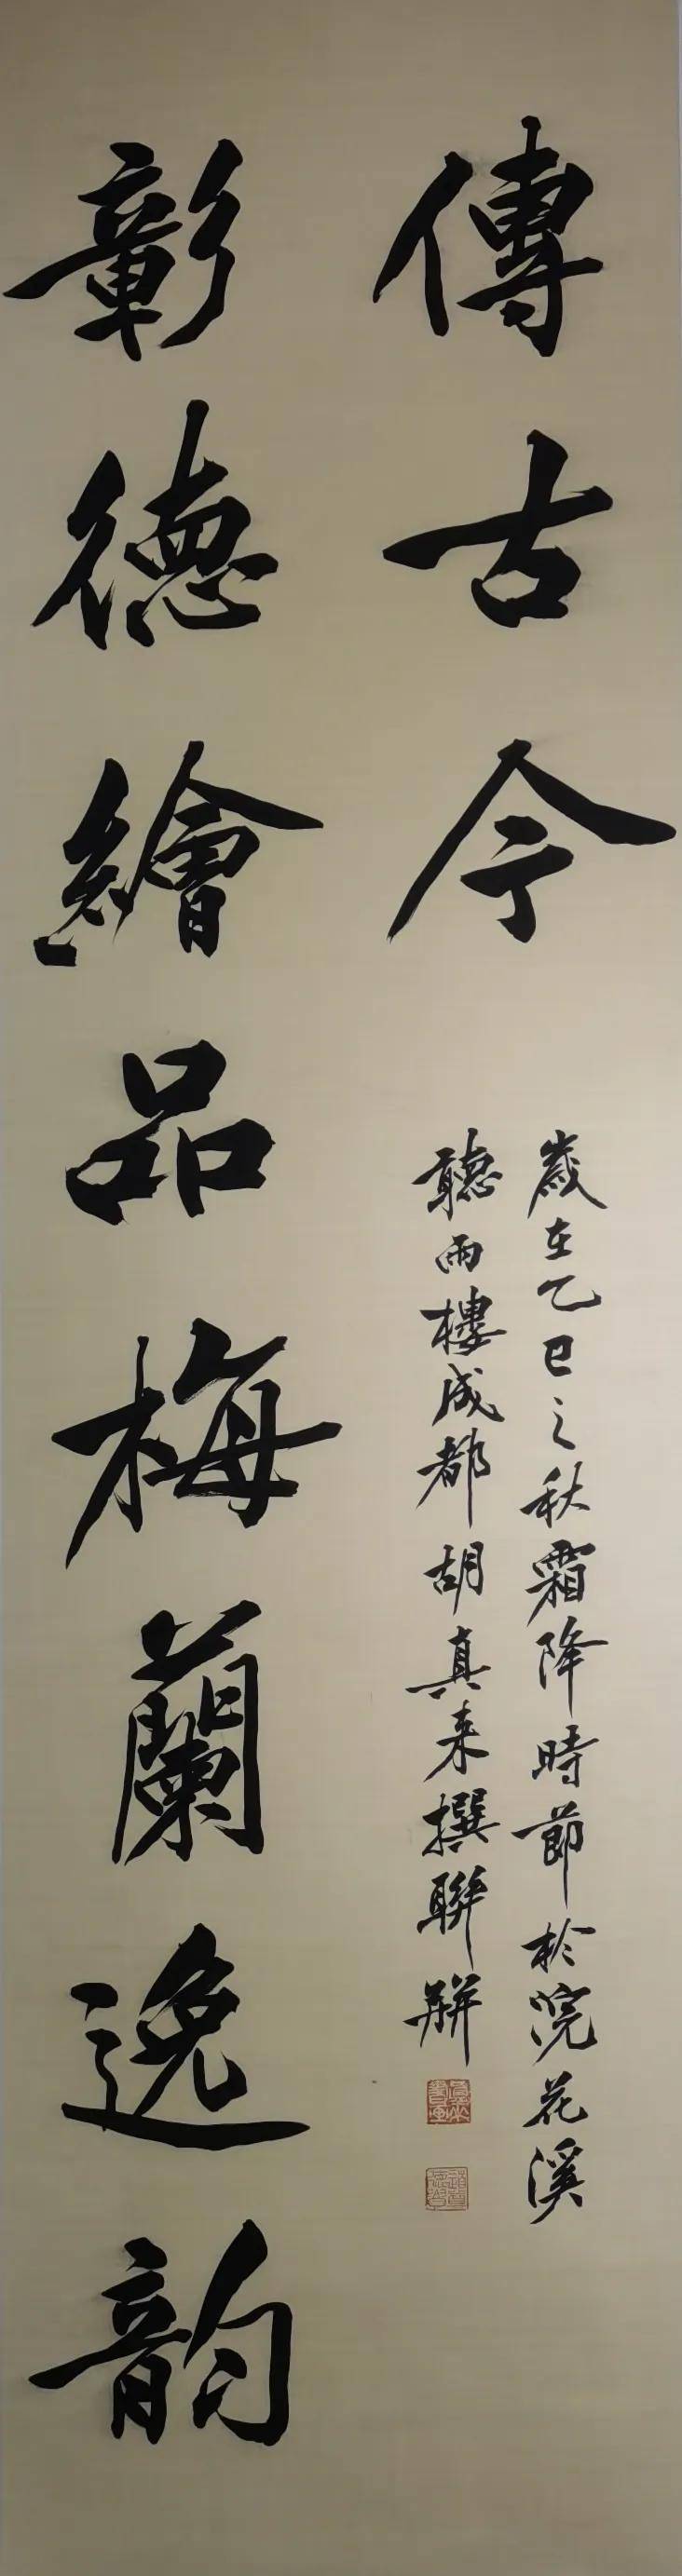 彰德繪品梅蘭逸韻
傳古今
歲在乙巳之秋霜降時節於浣花溪
聽雨樓成都胡真来撰聯